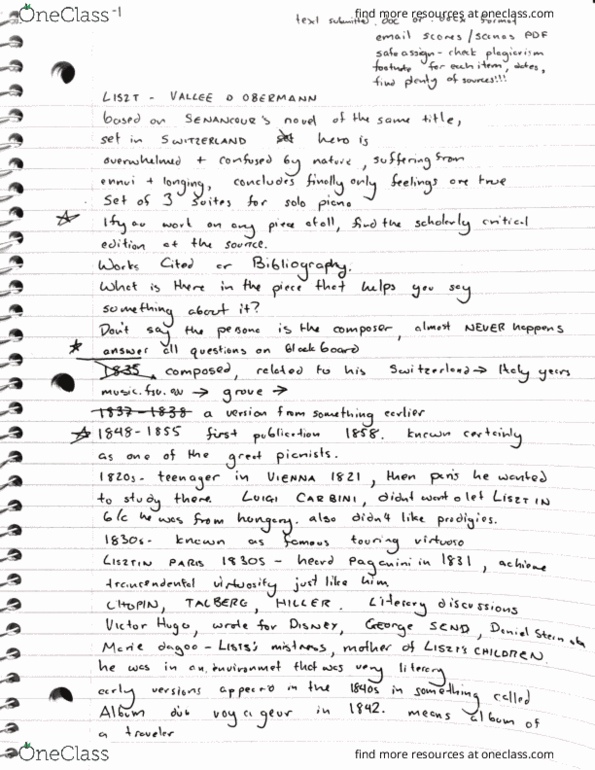 OneClass -1
find more resources at oneclass.com
text submitted .doc or format
email scores/scenes PDF
safe assign - check plagiarism
footnote for each item, dates,
find plenty of sources!!!
LISZT - VALLEE D OBERMANN
based on SENANCOUR'S novel of the same title,
set in SWITZERLAND hero is
overwhelmed + confused by nature, suffering from
ennui + longing, concludes finally only feelings are true
Set of 3 Suites for solo piano
If you work on any piece atall, find the scholarly critical
edition at the source.
Works Cited or Bibliography.
What is there in the piece that helps you say
something about it?
Don't say the persona is the composer, almost NEVER happens
answer all questions on blackboard
1835 composed, related to his Switzerland → Italy years
music.fsu.edu → grove →
1837-1838 a version from something earlier
1848-1855 first publication 1858. known certainly
as one of the great pianists.
1820s- teenager in VIENNA 1821, then paris he wanted
to study there LUIGI CARBINI, didnt want to let LISZT IN
b/c he was from hungary. also didn't like prodigies.
1830s- known as famous touring virtuoso
LISZT IN PARIS 1830S - heard Paganini in 1831, achieve
trancendental virtuosity just like him.
CHOPIN, TALBERG, HILLER. Literary discussions
Victor Hugo, wrote for DISNEY, GEORGE SEND, Daniel Stern aka
Marie dagoo - LISTS's mistress, mother of LISZT'S CHILDREN.
he was in an environmet that was very literary
early versions appeared in the 1840s in something called
Album dub voyageur in 1842. means album of
a traveler
OneClass
find more resources at oneclass.com